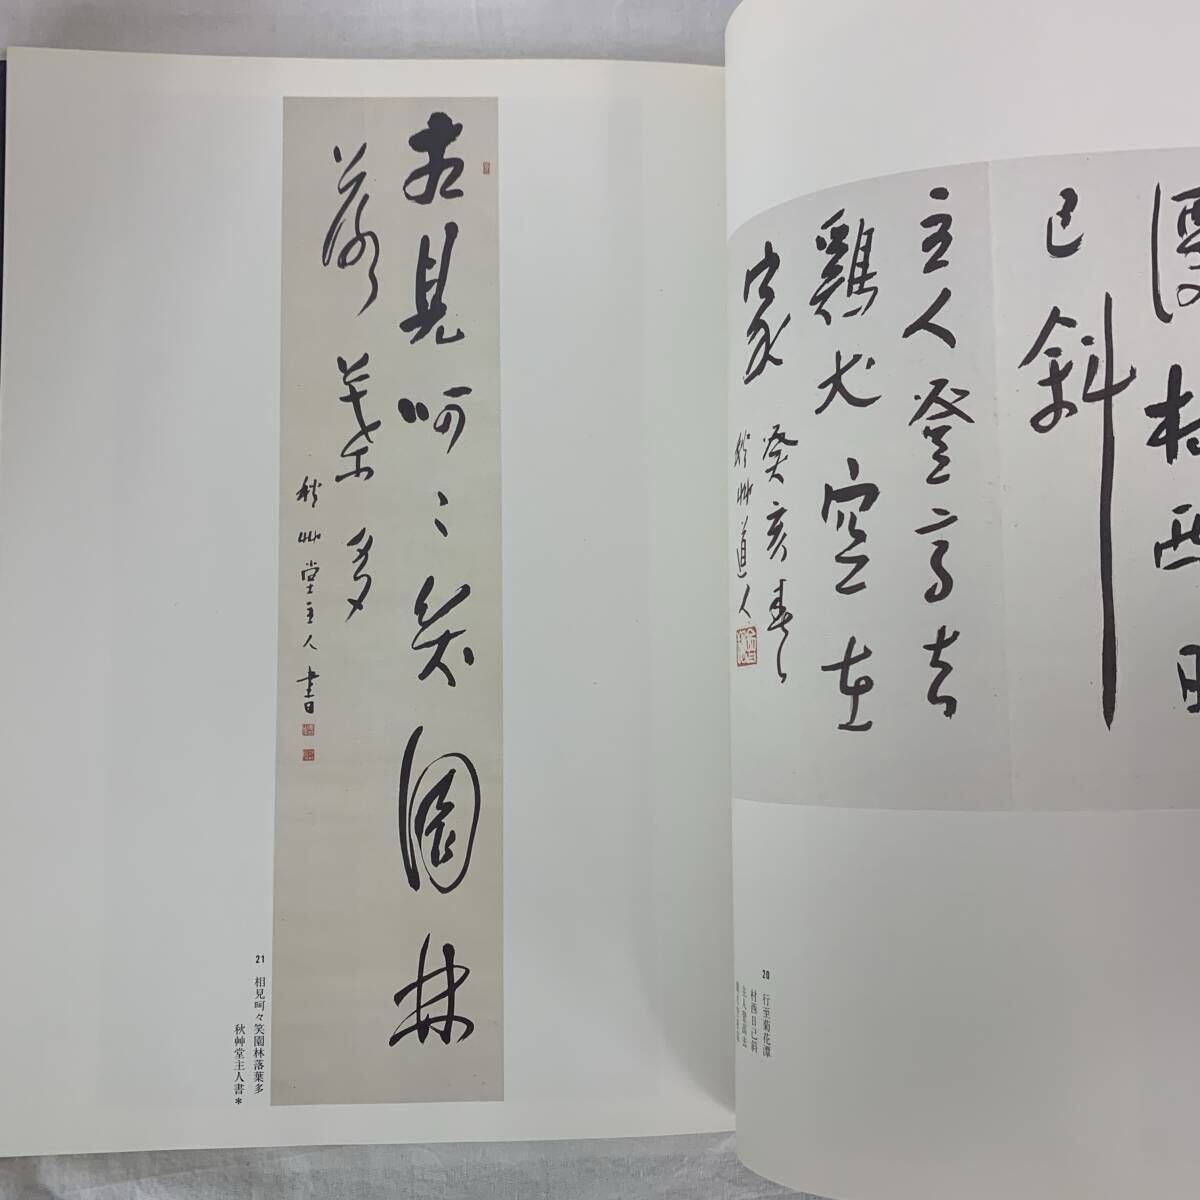 潭村西日
已斜
主人登高去
鶏犬空在
家 癸亥春日
秋艸道人
20 行至菊花潭
村西日已斜
主人登高去
相見呵〻笑園林
落葉多
秋艸堂主人書
21 相見呵々笑園林落葉多
秋艸堂主人書*